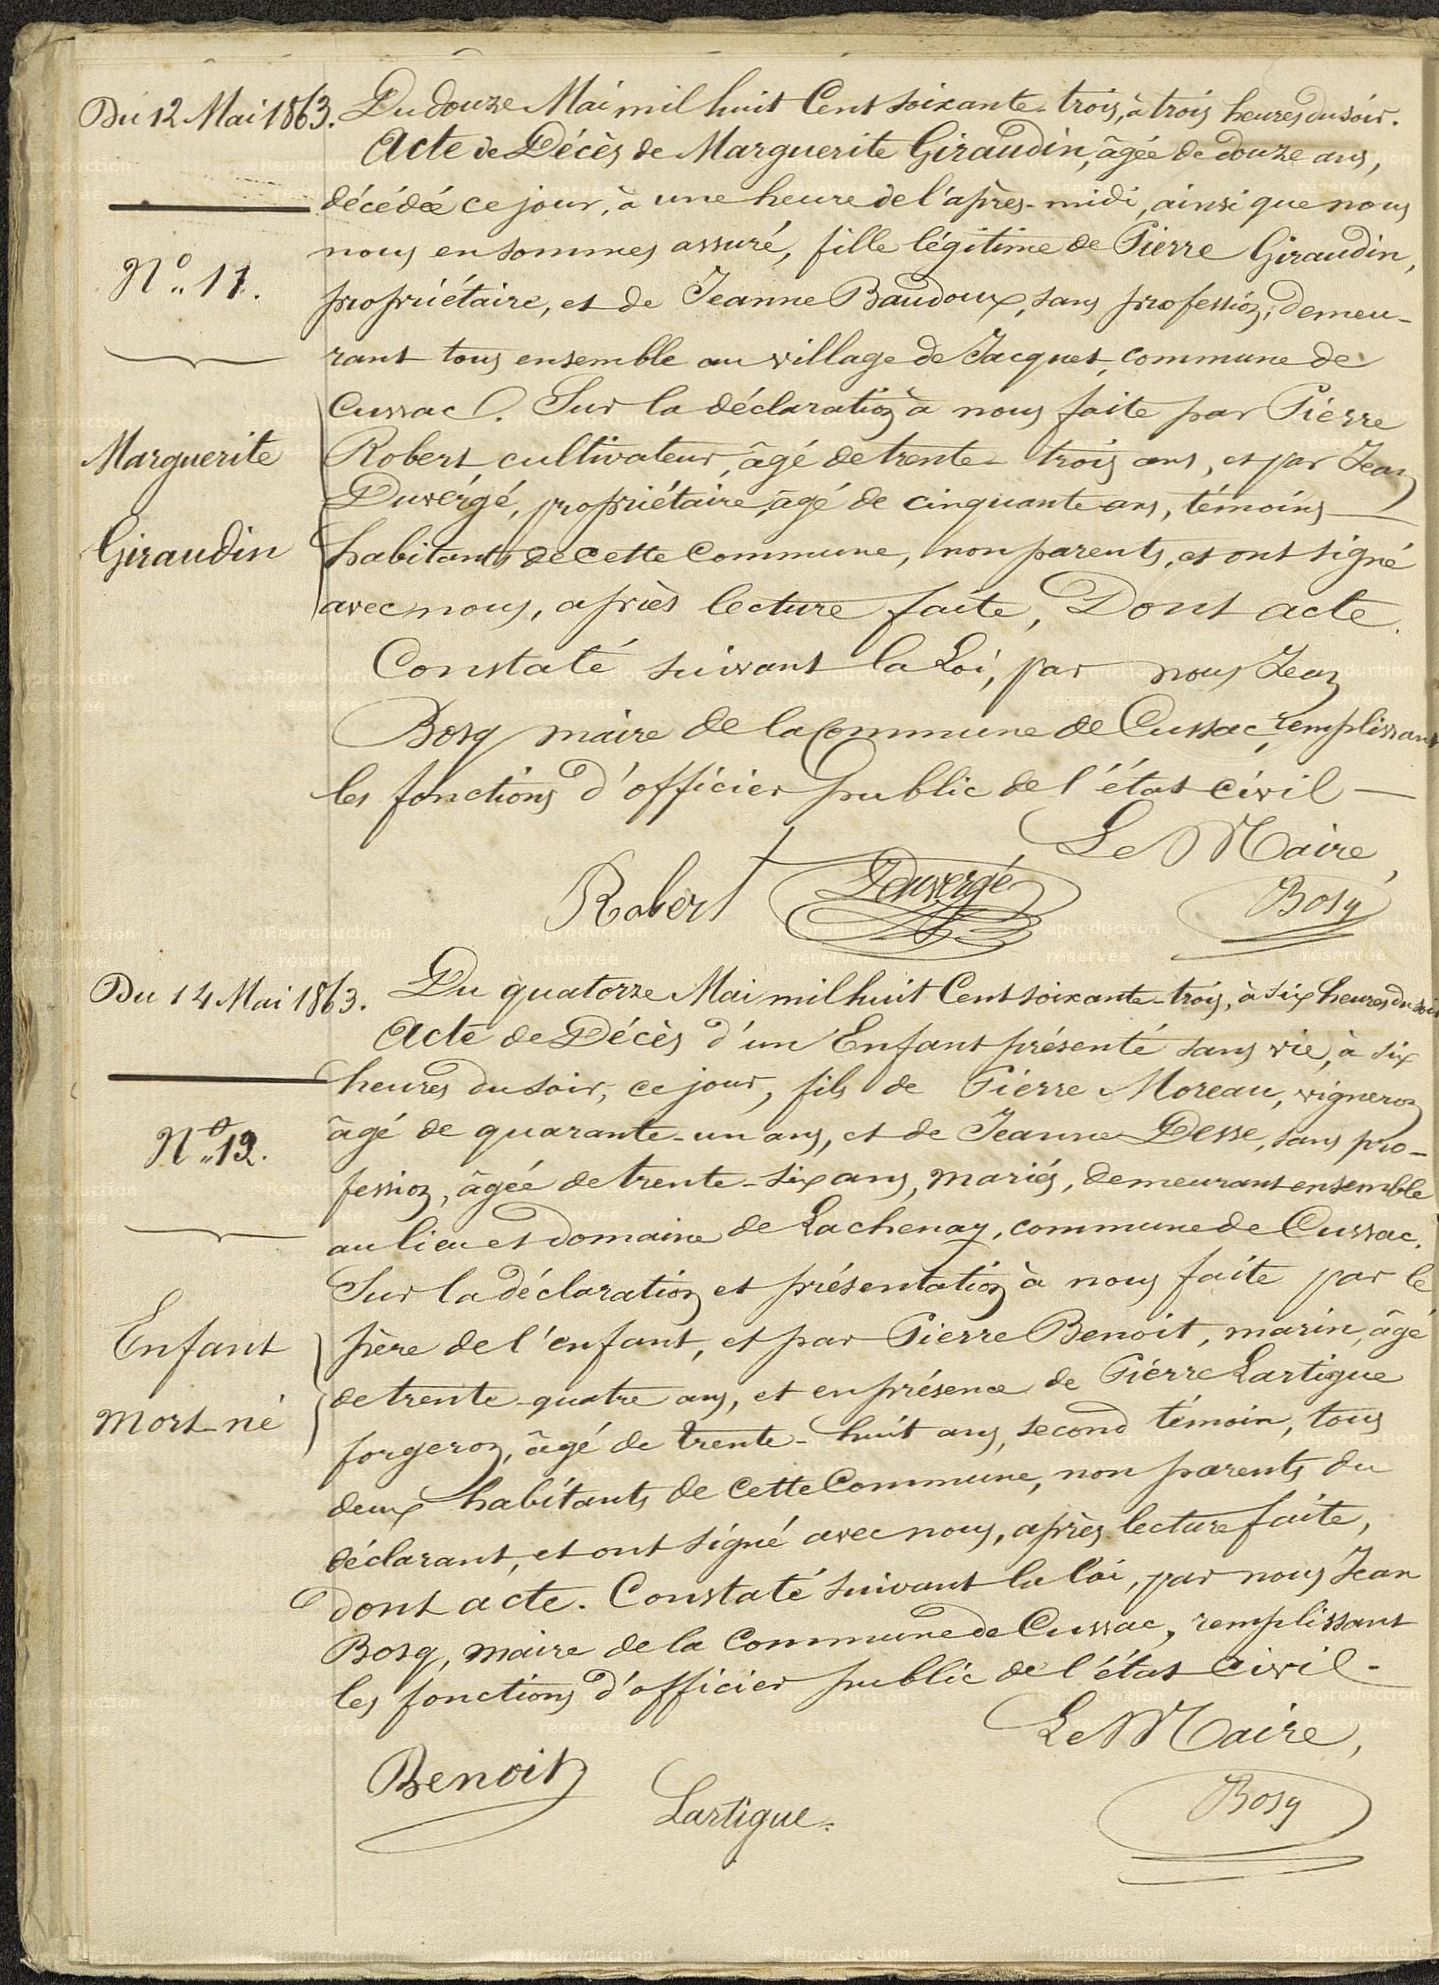 Du 12 Mai 1863.
N° 11.
Marguerite
Giraudin
Du douze Mai mil huit Cent soixante-trois, à trois heures du soir.
Acte de Décès de Marguerite Giraudin, âgée de douze ans,
décédée ce jour, à une heure de l'après-midi, ainsi que nous
nous en sommes assuré, fille légitime de Pierre Giraudin,
propriétaire, et de Jeanne Baudoux, sans profession, demeu-
rant tous ensemble au village de Jacquet, commune de
Cussac. Sur la déclaration à nous faite par Pierre
Robert cultivateur, âgé de trente-trois ans, et par Jean
Duvergé, propriétaire, âgé de cinquante ans, témoins
habitants de cette Commune, non parents, et ont signé
avec nous, après lecture faite, Dont acte.
Constaté suivant la Loi, par nous Jean
Bosq maire de la Commune de Cussac, remplissant
les fonctions d'officier public de l'état civil —
Le Maire,
Robert Duvergé Bosq
Du 14 Mai 1863.
N° 12.
Enfant
mort-né
Du quatorze Mai mil huit Cent soixante-trois, à six heures du soir
Acte de Décès d'un Enfant présenté sans vie, à six
heures du soir, ce jour, fils de Pierre Moreau, vigneron
âgé de quarante-un ans, et de Jeanne Desse, sans pro-
fession, âgée de trente-six ans, mariés, demeurant ensemble
au lieu et domaine de Lachenay, commune de Cussac.
Sur la déclaration et présentation à nous faite par le
père de l'enfant, et par Pierre Benoit, marin, âgé
de trente-quatre ans, et en présence de Pierre Lartigue
forgeron, âgé de trente-huit ans, second témoin, tous
deux habitants de cette Commune, non parents du
déclarant, et ont signé avec nous, après lecture faite,
dont acte. Constaté suivant la loi, par nous Jean
Bosq, maire de la Commune de Cussac, remplissant
les fonctions d'officier public de l'état civil.
Le Maire,
Benoit Lartigue. Bosq